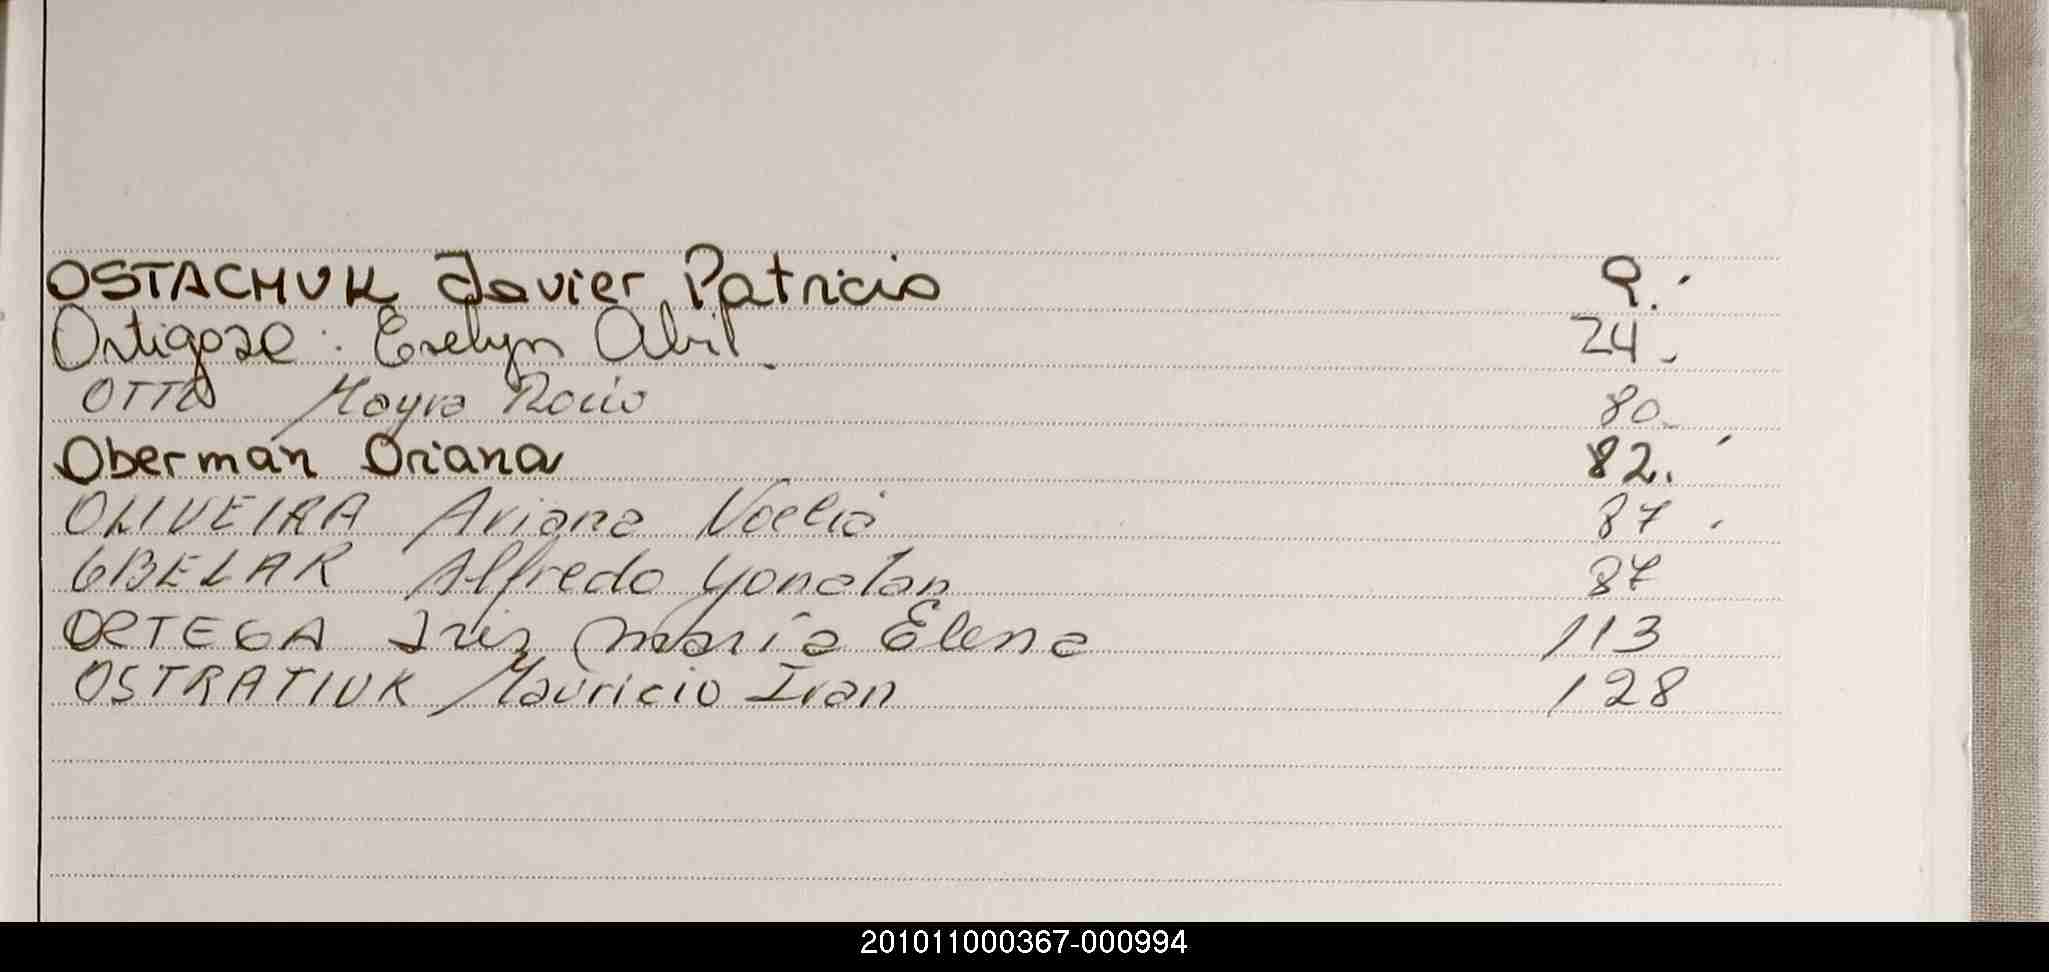 OSTACHUK Javier Patricio 9.
Ortigoza: Evelyn Abril 24.
OTTO Mayra Rocio 80
Oberman Oriana 82.
OLIVEIRA Ariana Noelia 87
OBELAR Alfredo Yonatan 87
ORTEGA Iris María Elena 113
OSTRATIUK Mauricio Ivan 128
201011000367-000994